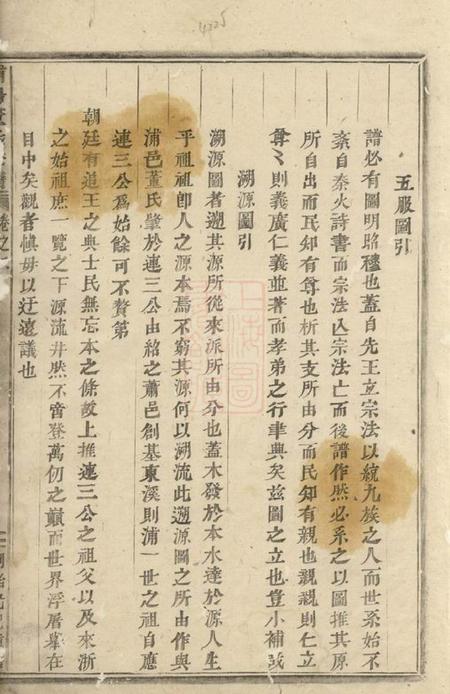 4225
五服圖引
譜必有圖明昭穆也蓋自先王立宗法以統九族之人而世系始不
紊自秦火詩書而宗法亾宗法亡而後譜作然必系之以圖推其原
所自出而民知有尊也析其支所由分而民知有親也親親則仁立
尊尊則義廣仁義並著而孝弟之行聿興矣茲圖之立也豈小補哉
溯源圖引
溯源圖者遡其源所從來派所由分也蓋木發於本水達於源人生
乎祖祖卽人之源本焉不窮其源何以溯流此遡源圖之所由作與
浦邑董氏肇於連三公由紹之蕭邑創基東溪則浦一世之祖自應
連三公爲始餘可不贅第
朝廷有追王之典士民無忘本之條敢上推連三公之祖父以及來浙
之始祖庶一覽之下源流井然不啻登萬仞之巔而世界浮屠羣在
目中矣觀者愼毋以迂遠議也
卷之
上海圖